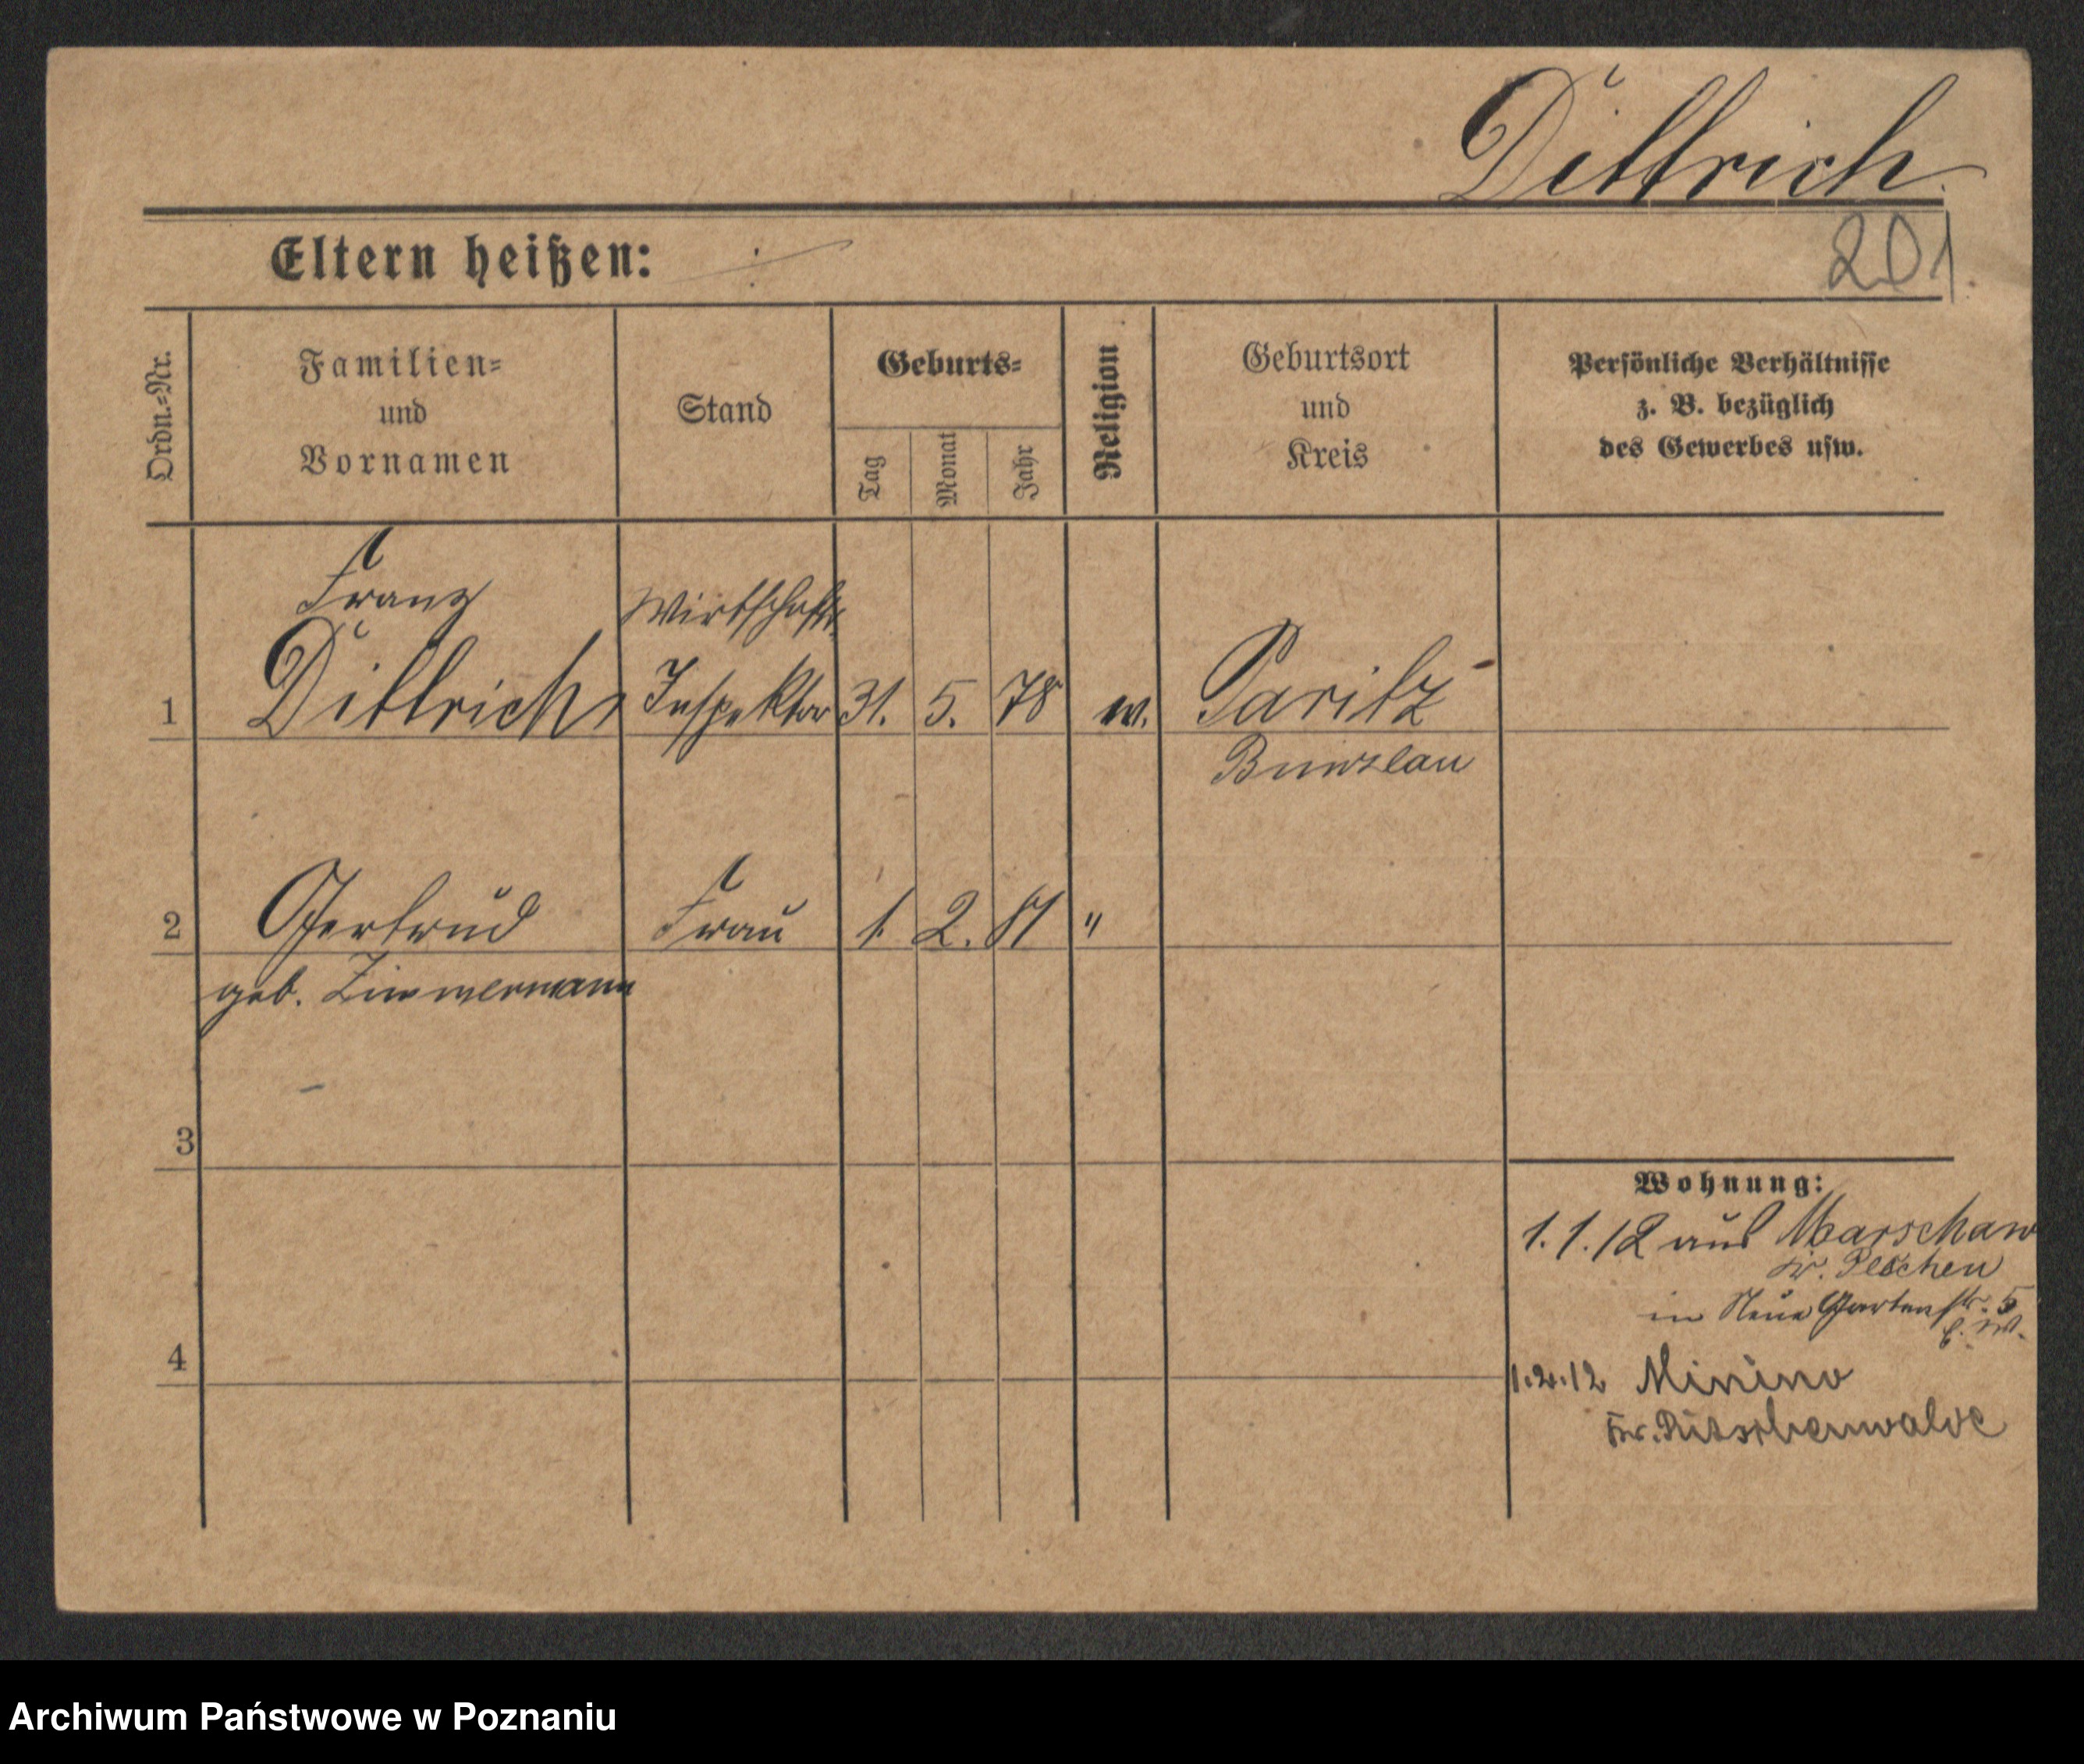 Dittrich
201
Eltern heißen:
Ordn.-Nr.
Familien-
und
Vornamen
Stand
Geburts-
Tag
Monat
Jahr
Religion
Geburtsort
und
Kreis
Persönliche Verhältnisse
z. B. bezüglich
des Gewerbes usw.
Franz Wirtschafts
1 Dittrich Inspektor 31. 5. 78 Paritz
Bunzlau
2 Gertrud Frau 1. 2. 81 "
geb. Zimmermann
3
Wohnung:
1.1.12 aus Marschaw
Kr. Pleschen
in Neue Gartenstr. 5
4
1.2.12 Minino
Kr. Ritschenwalde
Archiwum Państwowe w Poznaniu